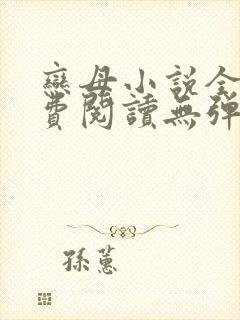 戀母小説全
費閱讀無彈
孫蕙